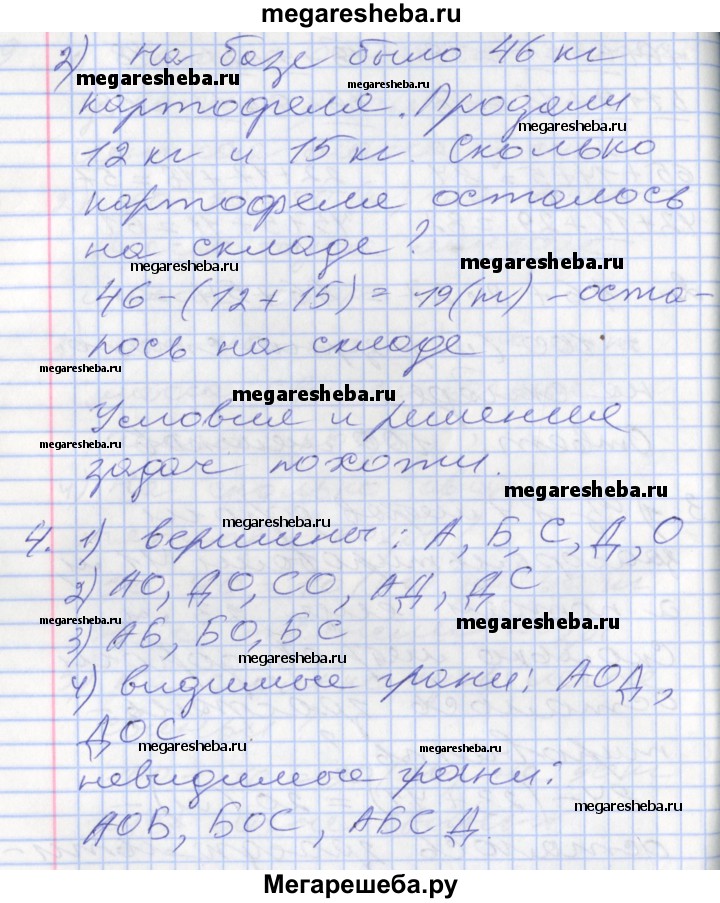 megaresheba.ru
2) На базе было 46 кг
megaresheba.ru
megaresheba.ru
картофеля. Продали
megaresheba.ru
12 кг и 15 кг. Сколько
картофеля осталось
на складе?
megaresheba.ru
megaresheba.ru
46-(12+15)=19(т) - оста-
лось на складе
megaresheba.ru
megaresheba.ru
Условие и решение
megaresheba.ru
задач похожи.
megaresheba.ru
megaresheba.ru
4. 1) вершины: А, Б, С, Д, О
megaresheba.ru
2) АО, ДО, СО, АД, ДС
megaresheba.ru
megaresheba.ru
3) АБ, БО, БС
megaresheba.ru
4) видимые грани: АОД,
ДОС
megaresheba.ru
megaresheba.ru
невидимые грани:
megaresheba.ru
АОБ, БОС, АБСД.
Мегарешеба.ру